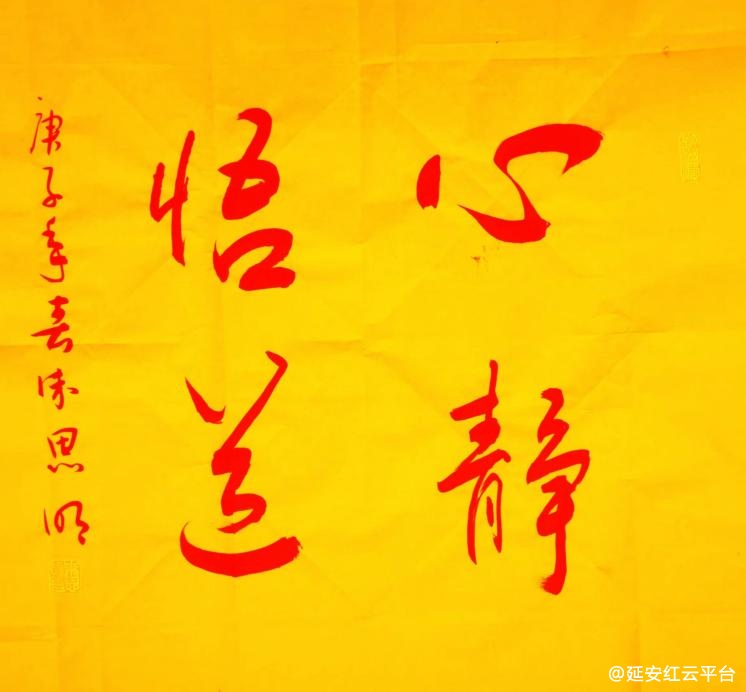 心静
悟道
庚子年 思明
@延安红云平台